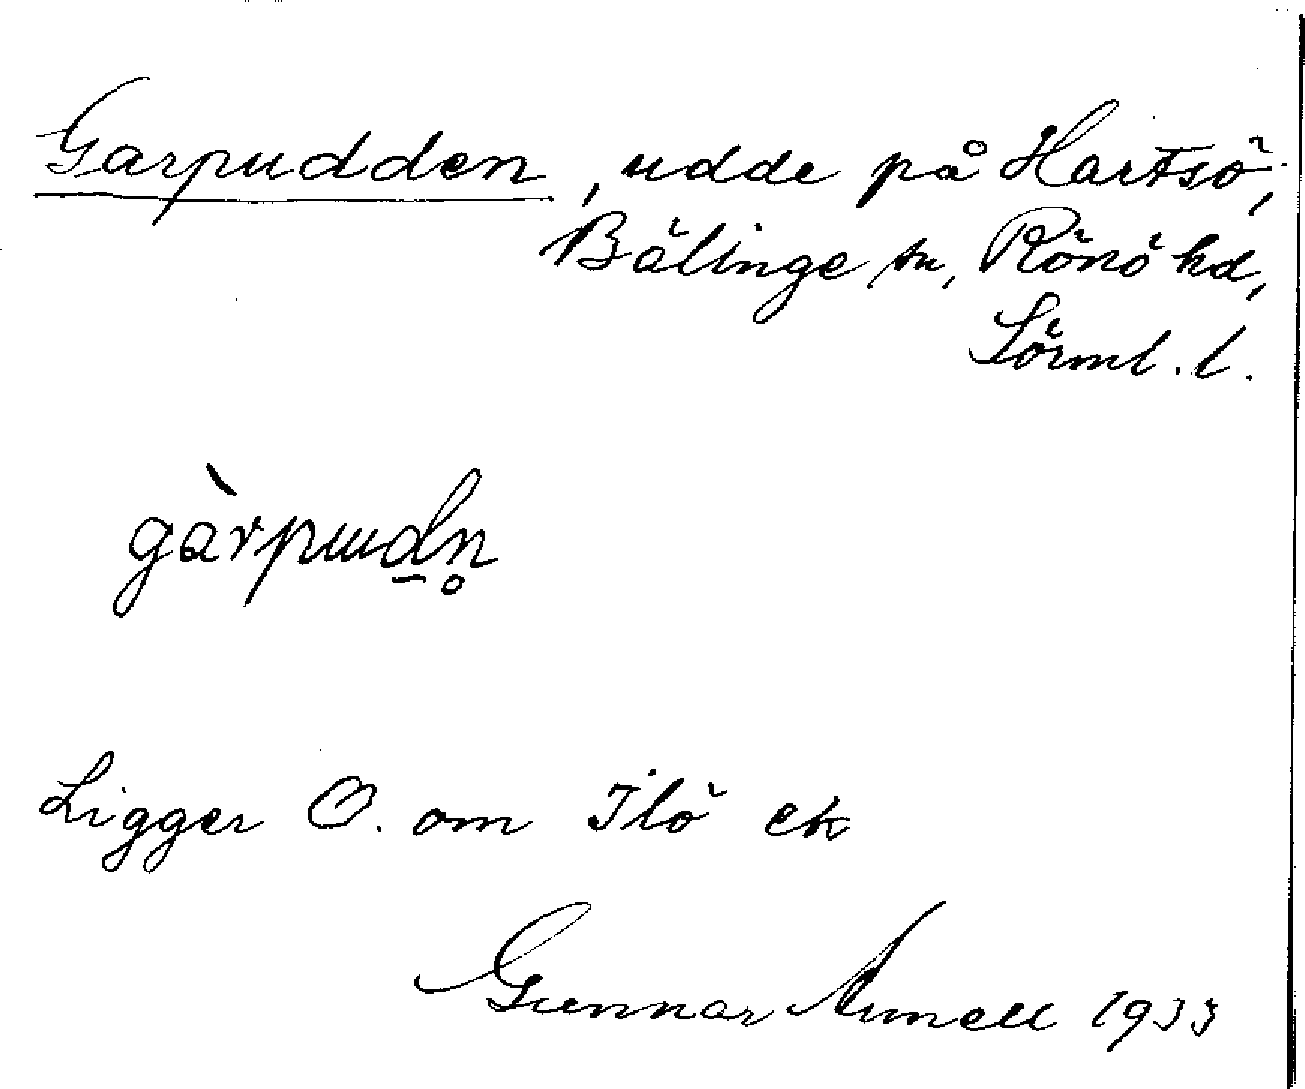 Garpudden, udde på Hartsö,
Bälinge sn, Rönö hd,
Sörml. l.
gàrpudn̥
Ligger O. om Ilö ek
Gunnar 1933